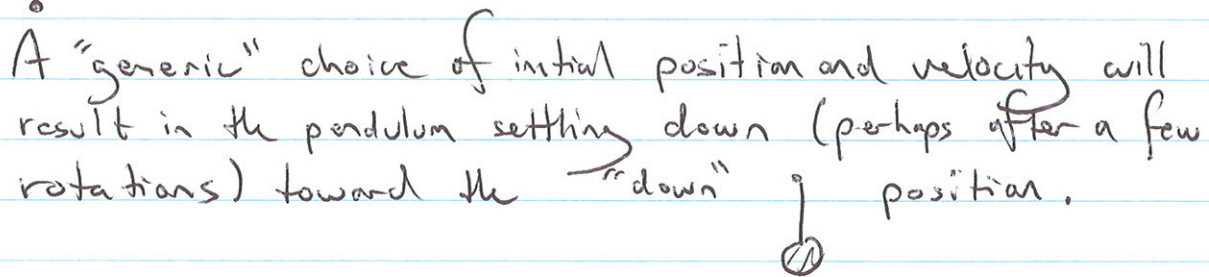 A "generic" choice of initial position and velocity will
result in the pendulum settling down (perhaps after a few
rotations) toward the "down" position.